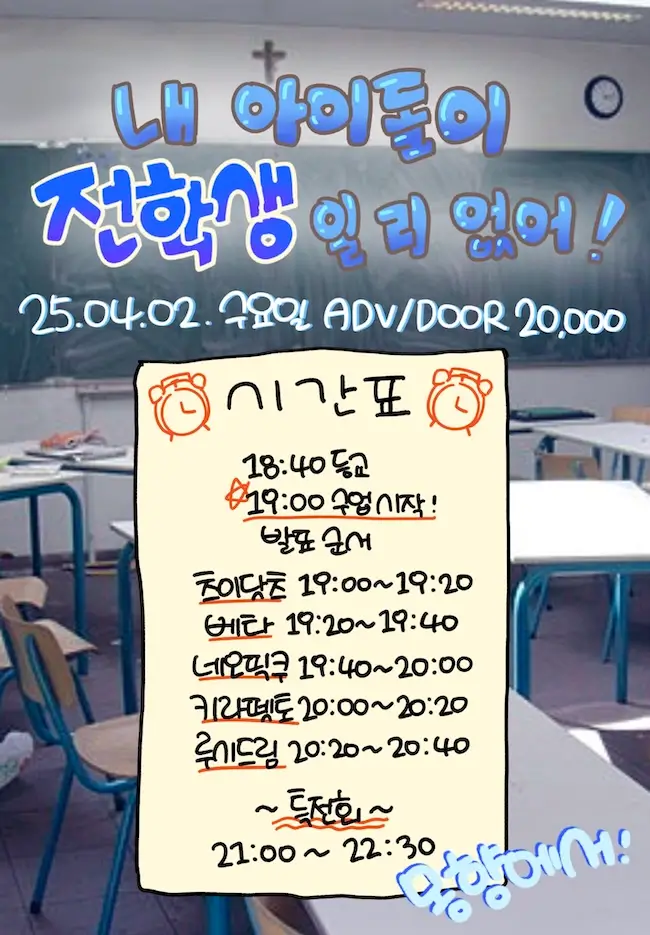 내 아이돌이
전학생 일 리 없어!
25.04.02. 수요일 ADV/DOOR 20,000
시간표
18:40 등교
19:00 수업 시작!
발표 순서
츠이당츠 19:00~19:20
베타 19:20~19:40
네오픽쿠 19:40~20:00
키라펭토 20:00~20:20
루시드림 20:20~20:40
~ 특전회 ~
21:00 ~ 22:30
멍항에서!